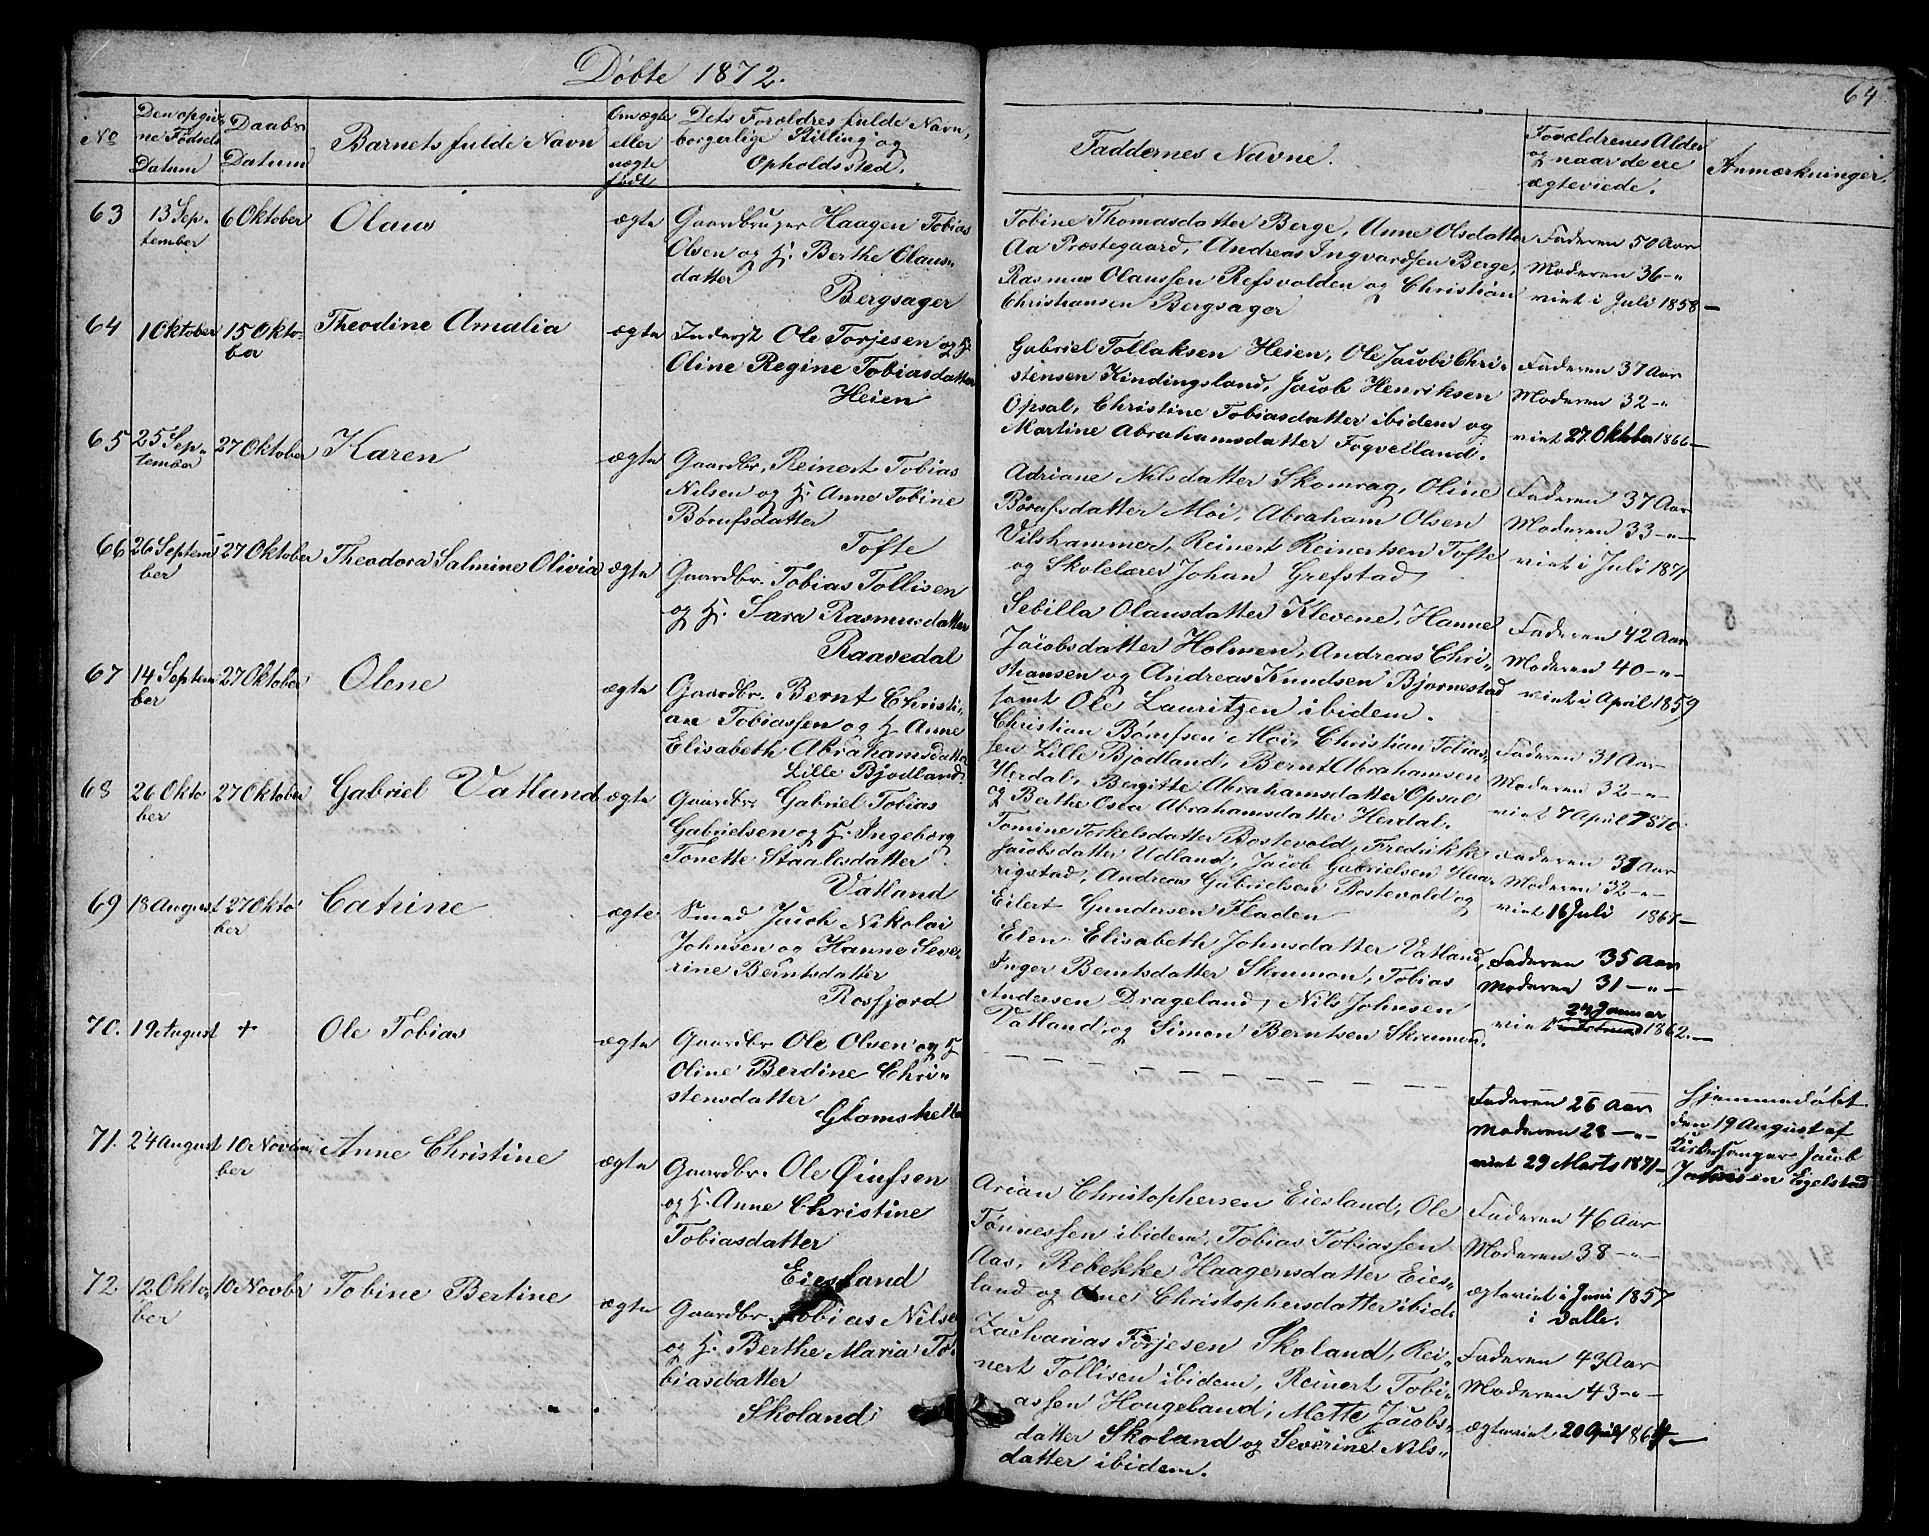 Døbte 1872.
64
No
Den opgiv
ne Fødsels
Datum
Daabs
Datum
Barnets fulde Navn
Om ægte
eller
uægte
født
Dets Forældres fulde Navn,
borgerlige Stilling og
Opholdssted.
Faddernes Navne.
Forældrenes Alder
og naar de ere
ægteviede.
Anmærkninger.
63
13 Sep-
tember
6 Oktober
Olaus
ægte
Gaardbruger Haagen Tobias
Olsen og H. Berthe Olaus-
datter
Bergsager
Tobine Thomasdatter Berge, Anne Olsdatter
Aa Præstegaard, Andreas Ingvardsen Berge,
Rasmus Olaussen Refsvolden og Christian
Christiansen Bergsager
Faderen 50 Aar
Moderen 36 -"
viet i Juli 1858 -
64
1 Oktober
15 Okto-
ber
Theodine Amalia
ægte
Inderst Ole Torjesen og H.
Oline Regine Tobiasdatter
Heien
Gabriel Tollaksen Heien, Ole Jacobi Chri-
stensen Kindingsland, Jacob Henriksen
Opsal, Christine Tobiasdatter ibidem og
Martine Abrahamsdatter Fogvelland.
Faderen 37 Aar
Moderen 32 -"
viet 27 Oktober 1866 -
65
25 Sep-
tember
27 Oktober
Karen
ægte
Gaardbr. Reinert Tobias
Nilsen og H. Anne Tobine
Børufsdatter
Tofte
Adriane Nilsdatter Skomrag, Oline
Børufsdatter Moi, Abraham Olsen
Vilshammer, Reinert Reinertsen Tofte
og Skolelærer Johan Grefstad
Faderen 37 Aar
Moderen 33 -"-
viet i Juli 1871
66
26 Septem-
ber
27 Oktober
Theodora Salmine Olivia
ægte
Gaardbr. Tobias Tollisen
og H. Sara Rasmusdatter
Raavedal
Sebilla Olausdatter Klevene, Hanne
Jacobsdatter Holmen, Andreas Chri-
stiansen og Andreas Knudsen Bjørnestad
samt Ole Lauritzen ibidem.
Faderen 42 Aar
Moderen 40 -"-
viet i April 1859
67
14 Septem
ber
27 Oktober
Olene
ægte
Gaardbr. Bernt Christi-
an Tobiassen og H. Anne
Elisabeth Abrahamsdatter
Lille Bjodland.
Christian Børufsen Moi, Christian Tobias-
sen Lille Bjodland, Bernt Abrahamsen
Herdal, Bergitte Abrahamsdatter Opsal
og Berthe Osea Abrahamsdatter Herdal.
Faderen 31 Aar
Moderen 32 -"-
viet 7 April 1870
68
26 Okto
ber
27 Oktober
Gabriel Vatland
ægte
Gaardbr. Gabriel Tobias
Gabrielsen og H. Ingeborg
Tonette Staalesdatter
Vatland
Tomine Torkelsdatter Bostevold, Fredrikke
Jacobsdatter Udland, Jacob Gabrielsen Haa-
rigstad, Andreas Gabrielsen Bostevold og
Eilert Gundersen Fladen
Faderen 31 Aar
Moderen 32 -"-
viet 16 Juli 1867 -
69
18 August
27 Okto
ber
Catrine
ægte
Smed Jacob Nikolai
Johnsen og Hanne Seve-
rine Berntsdatter
Rosfjord
Elen Elisabeth Johnsdatter Vatland,
Inger Berntsdatter Skrumon, Tobias
Andersen Drageland, Nils Johnsen
Vatland og Simon Berntsen Skrumon.
Faderen 35 Aar
Moderen 31 -"-
24 Januar
viet 1862. -
70.
19 August
+
Ole Tobias
ægte
Gaardbr. Ole Olsen og H
Oline Berdine Chri-
stensdatter
Glomshelle
Faderen 26 Aar
Moderen 28 -"-
viet 29 Marts 1871 -
Hjemmedøbt
den 19 August af
Kirkesanger Jacob
Egelstad
71.
24 August
10 Novem
ber
Anne Christine
ægte
Gaardbr. Ole Øiufsen
og H. Anne Christine
Tobiasdatter
Eiesland
Arian Christophersen Eiesland, Ole
Tønnessen ibidem, Tobias Tobiassen
Aas, Rebekke Haagensdatter Eies-
land og Ane Christophersdatter ibid.
Faderen 46 Aar
Moderen 38 -"-
ægteviet i Juni 1857
i Valle.
72
12 Okto-
ber
10 Novbr
Tobine Bertine
ægte
Gaardbr. Tobias Nilse
og H. Berthe Maria To-
biasdatter
Skoland
Zacharias Torjesen Skoland, Rei-
nert Tollisen ibidem, Reinert Tobi-
assen Hougeland, Mette Jacobs-
datter Skoland og Severine Nils-
datter ibidem.
Faderen 43 Aar
Moderen 43 -"-
ægteviet 20 April 1864 -